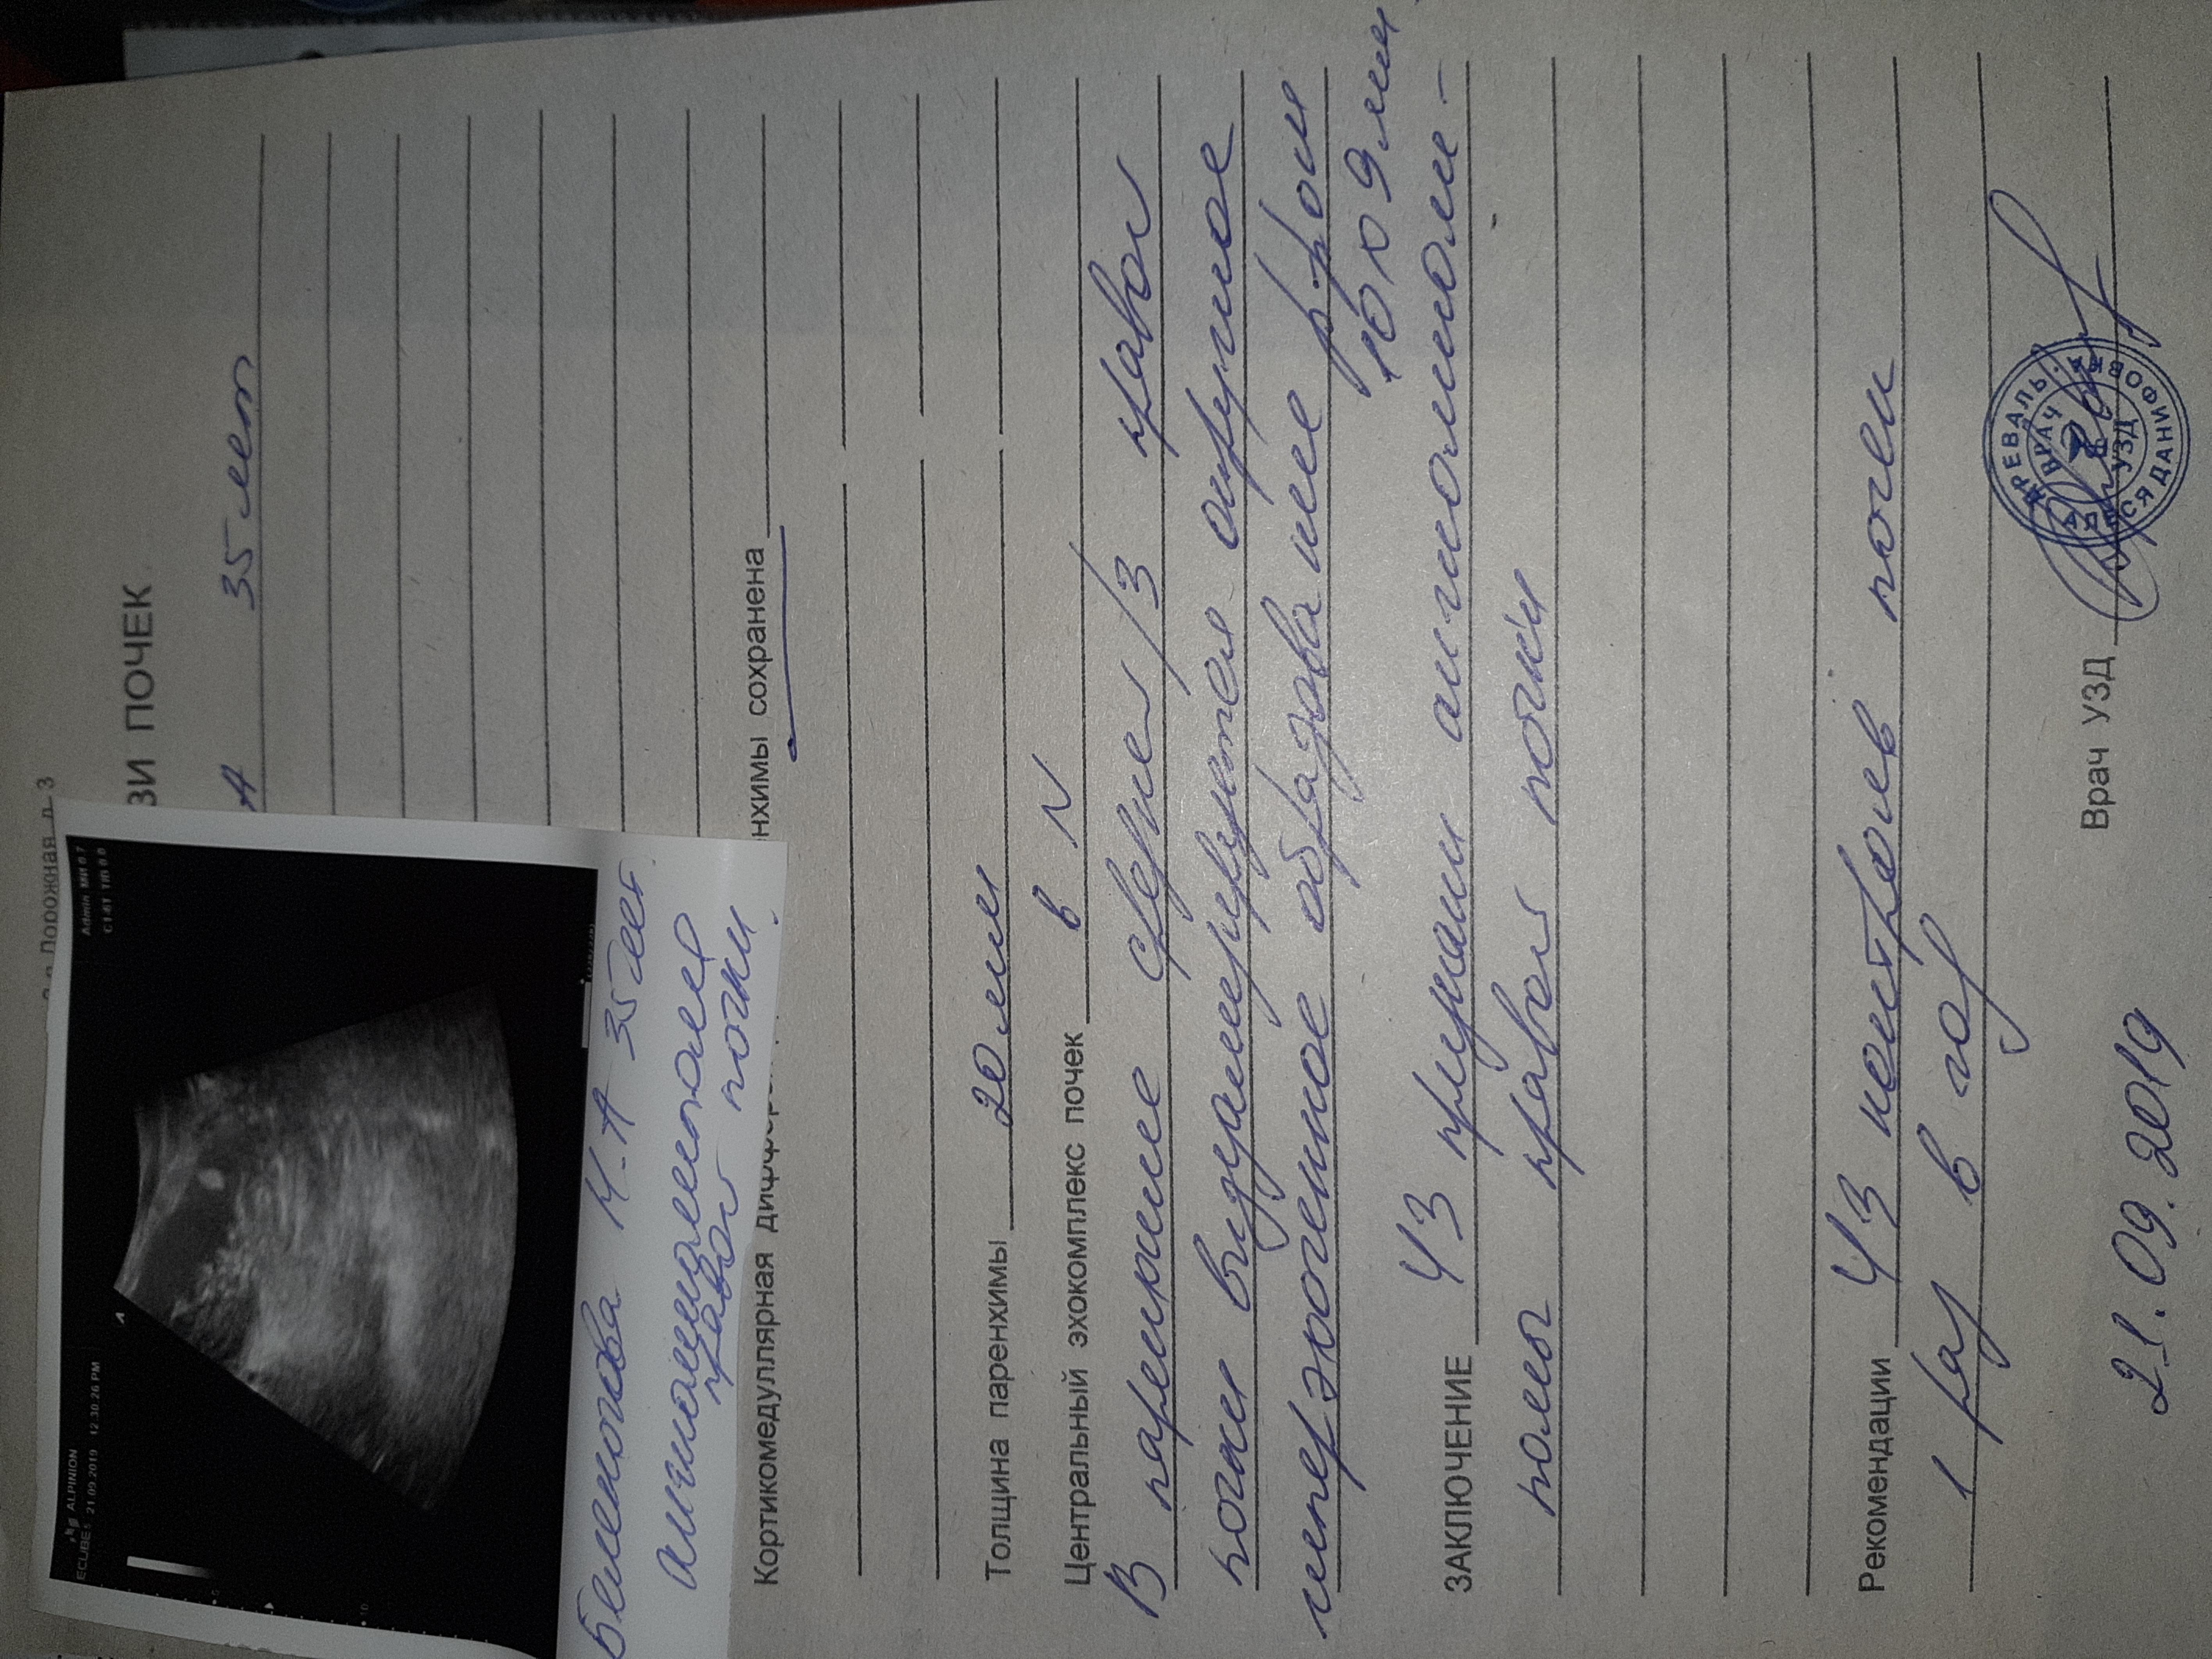 Дорожная д 3
ЗИ ПОЧЕК
А 35 лет
ALPINION
ECUBE5 21.09.2019 12:30:26 PM
Admin MI 0.7
А
М-А 35 лет
ангиомиолипома
правой почки.
Кортикомедуллярная
нхимы сохранена
Толщина паренхимы 20 мм
Центральный эхокомплекс почек в N
В паренхиме средней/3 правой
почки визуализируется округлое
гиперэхогенное образование р-ром
10х9 мм
ЗАКЛЮЧЕНИЕ УЗ признаки ангиомиоли-
помы правой почки
Рекомендации УЗ контроль почек
1 раз в год
21.09.2019 Врач УЗД
ВРАЧ
УЗД